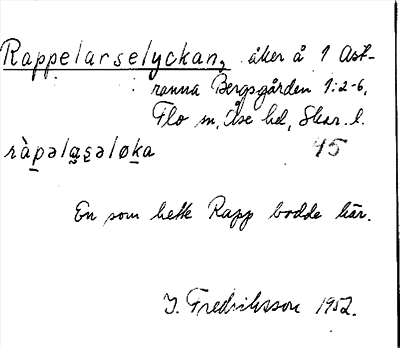 Rappelarselyckan, åker å 1 Ast-
ranna Bergsgården 1:2-6,
Flo sn, Åse hd, Skar. l.
ràpəlaʂəløka 45
En som hette Rapp bodde här.
J. Fredriksson 1952.